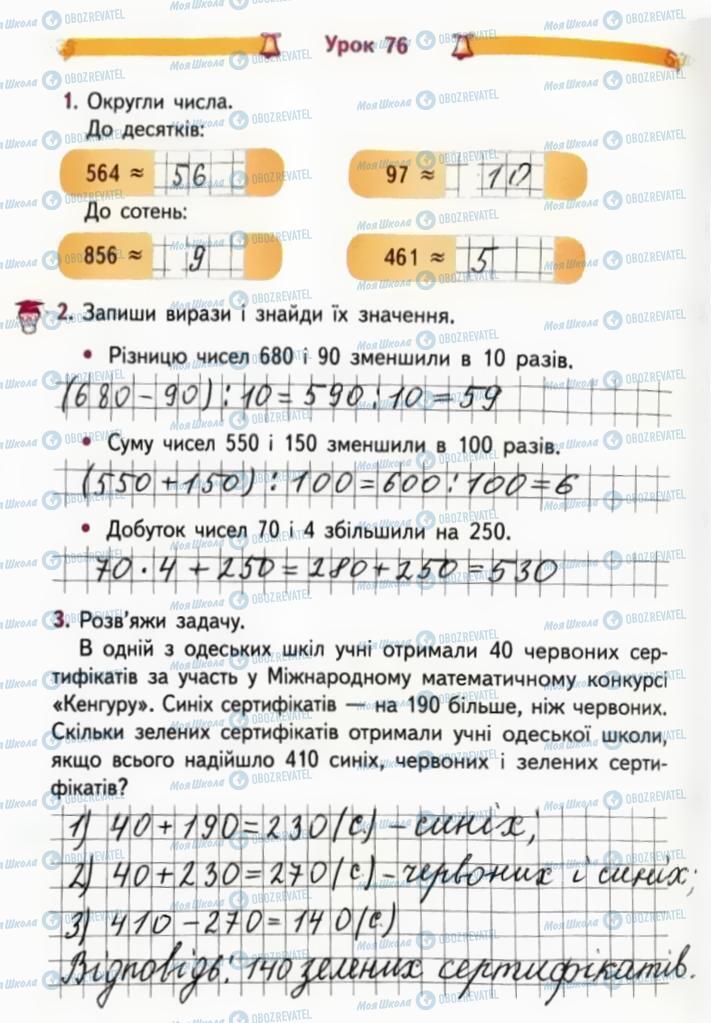 Урок 76
1. Округли числа.
До десятків:
564 ≈ 56
97 ≈ 10
До сотень:
856 ≈ 9
461 ≈ 5
2. Запиши вирази і знайди їх значення.
• Різницю чисел 680 і 90 зменшили в 10 разів.
(680 - 90) : 10 = 590 : 10 = 59
• Суму чисел 550 і 150 зменшили в 100 разів.
(550 + 150) : 100 = 600 : 100 = 6
• Добуток чисел 70 і 4 збільшили на 250.
70 · 4 + 250 = 280 + 250 = 530
3. Розв'яжи задачу.
В одній з одеських шкіл учні отримали 40 червоних сер-
тифікатів за участь у Міжнародному математичному конкурсі
«Кенгуру». Синіх сертифікатів — на 190 більше, ніж червоних.
Скільки зелених сертифікатів отримали учні одеської школи,
якщо всього надійшло 410 синіх, червоних і зелених серти-
фікатів?
1) 40 + 190 = 230 (с) - синіх;
2) 40 + 230 = 270 (с) - червоних і синіх;
3) 410 - 270 = 140 (с.)
Відповідь: 140 зелених сертифікатів.
МояШкола OBOZREVATEL